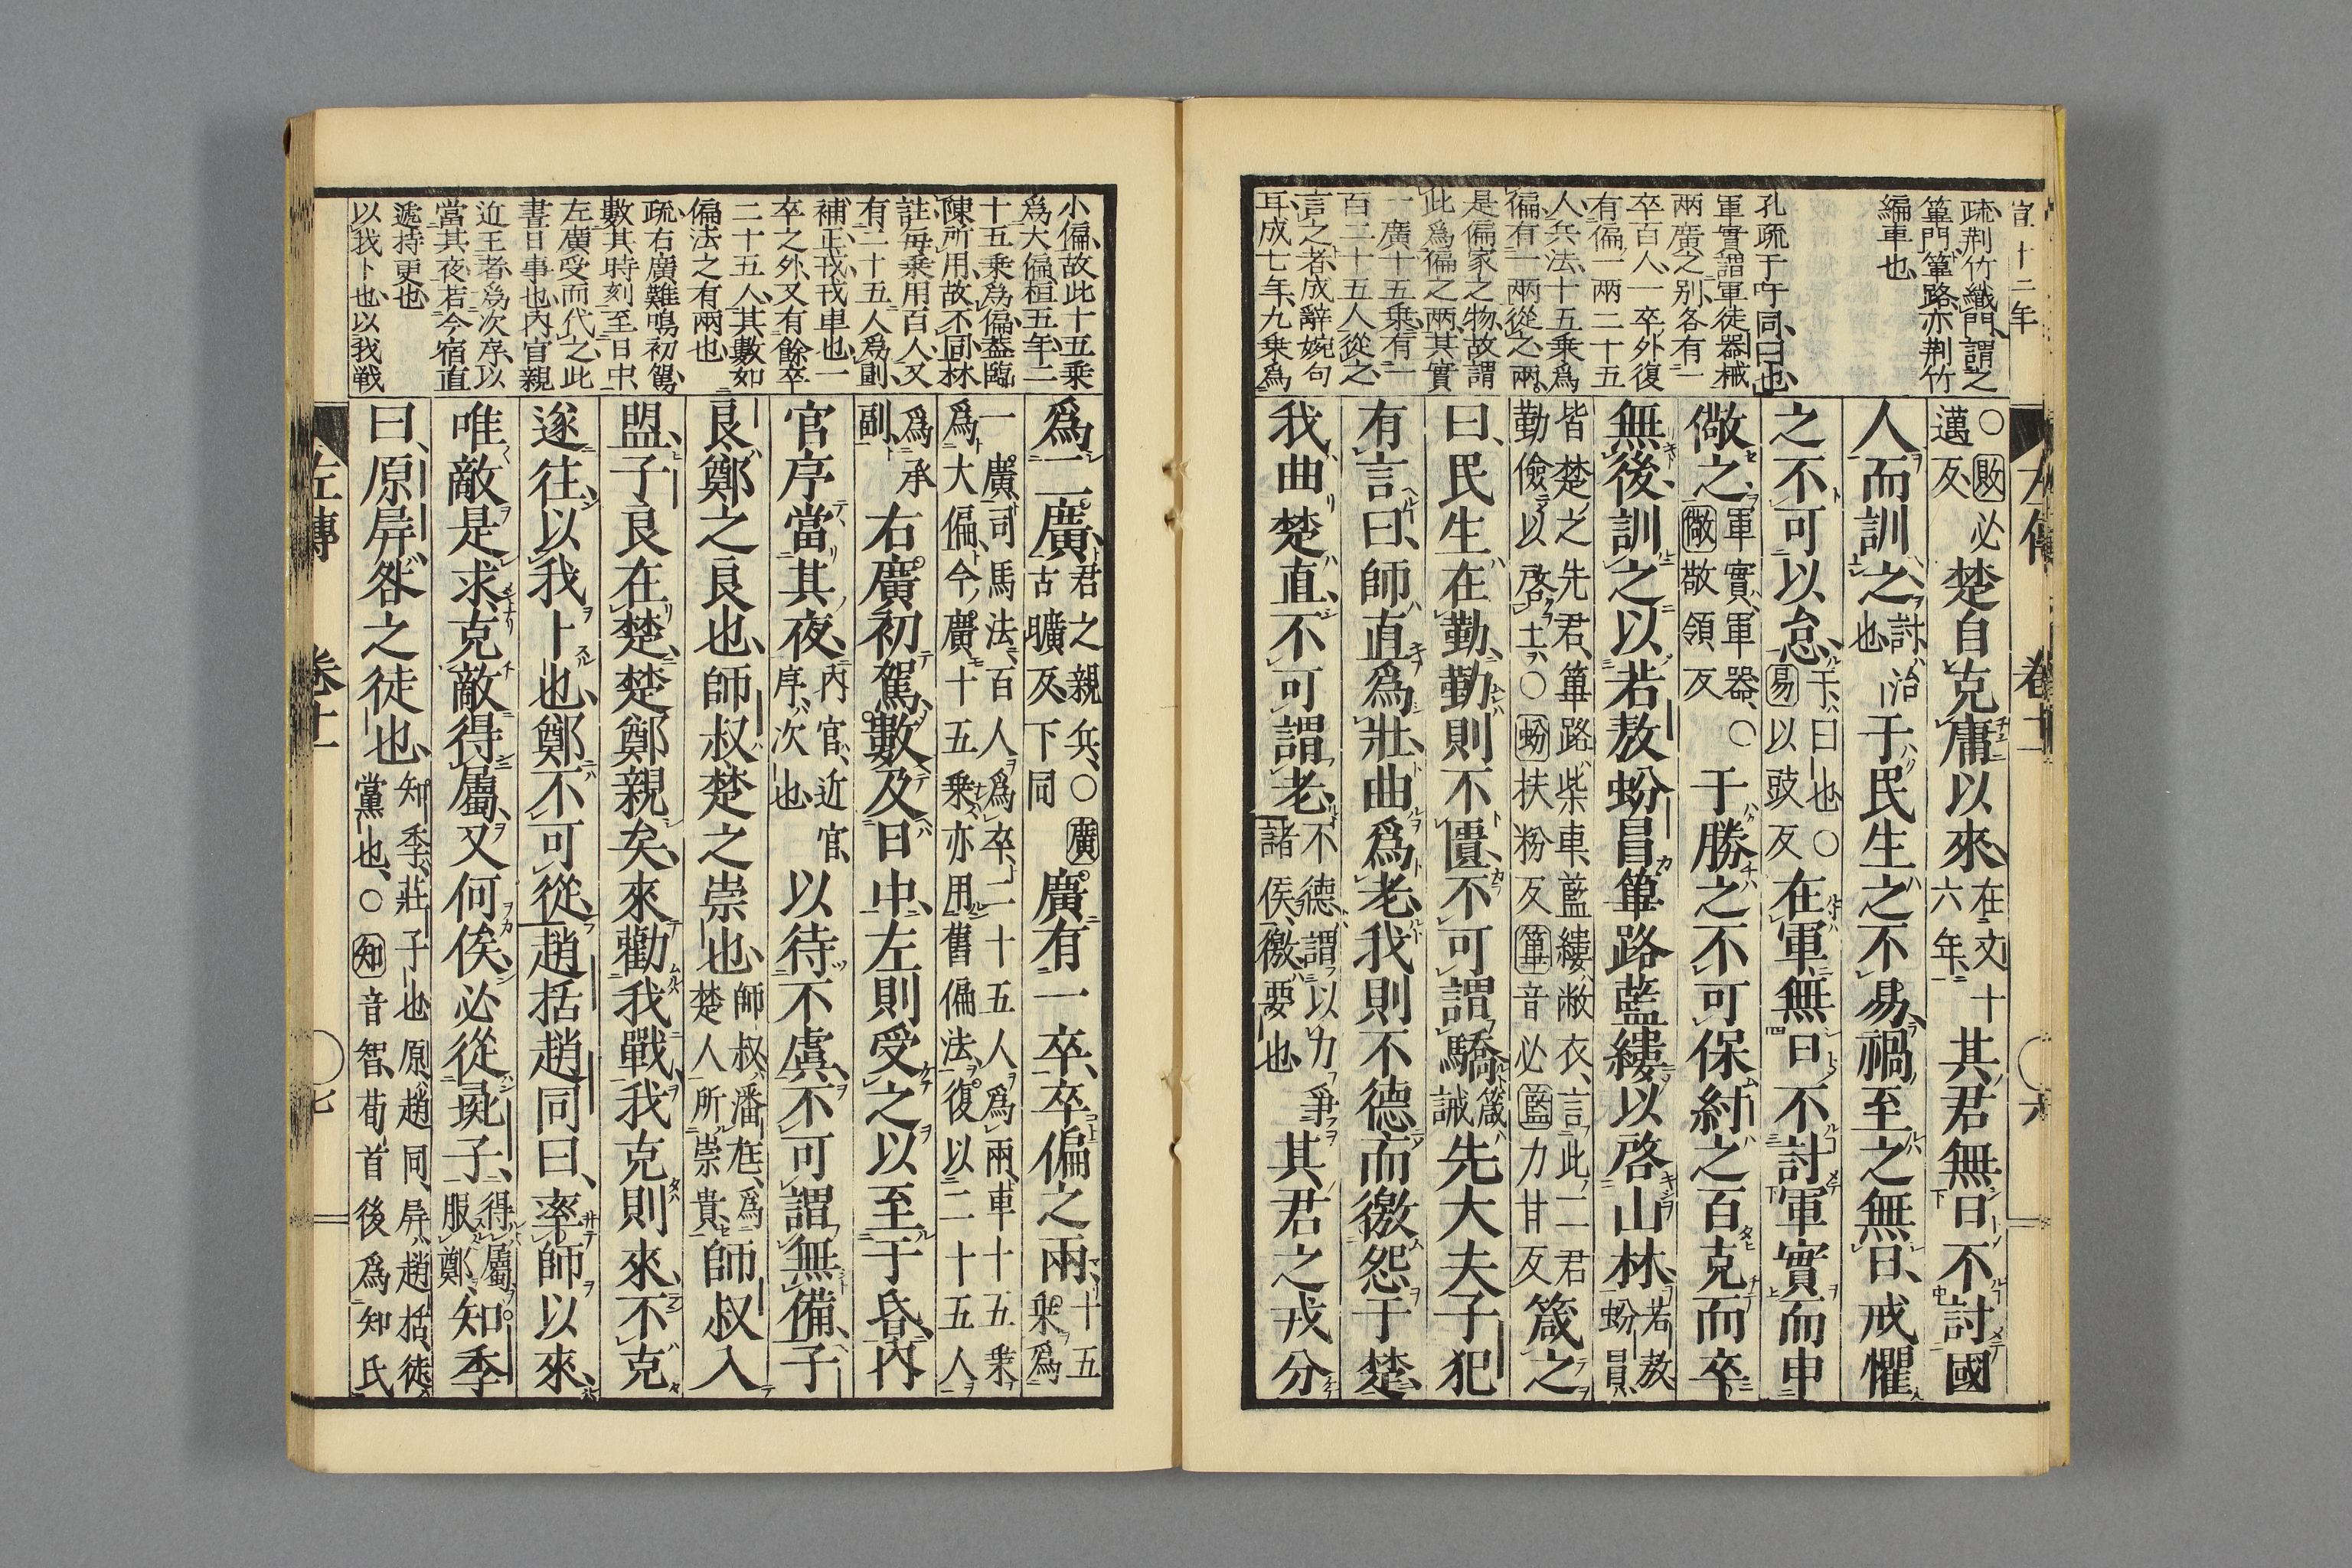 宣十二年
疏荆竹織門謂之
篳門篳路亦荆竹
編車也
孔疏于亏同曰也
軍實謂軍徒器械
兩廣之别各有一
卒百人一卒外復
有偏一兩二十五
人兵法十五乘爲
偏有一兩從之兩
是偏家之物故謂
此爲偏之兩其實
一廣十五乘有一
百二十五人從之
言之者成辭婉句
耳成七年九乘爲
○敗必邁反楚自克庸以來在文十六年其君無日不討國
人而訓之討治也于民生之不易禍至之無日戒懼
之不可以怠于曰也○易以豉反在軍無日不討軍實而申
儆之軍實軍器○儆敬領反于勝之不可保紂之百克而卒
無後訓之以若敖蚡冒篳路藍縷以啓山林若敖蚡冒
皆楚之先君篳路柴車藍縷敝衣言此二君勤儉以啓土○蚡扶粉反篳音必藍力甘反箴之
曰民生在勤勤則不匱不可謂驕箴誡先大夫子犯
有言曰師直爲壯曲爲老我則不德而徼怨于楚
我曲楚直不可謂老不德謂以力爭諸侯徼要也其君之戎分
小偏故此十五乘
爲大偏桓五年二
十五乘爲偏蓋臨
陳所用故不同林
註毎乘用百人又
有二十五人爲副
補正戎戎車也一
卒之外又有餘卒
二十五人其數如
偏法之有兩也
疏右廣雞鳴初駕
數其時刻至日中
左廣受而代之此
書日事也内官親
近王者爲次序以
當其夜若今宿直
遞持更也
以我卜也以我戰
爲二廣君之親兵○廣古曠反下同廣有一卒卒偏之兩十五乘爲
一廣司馬法百人爲卒二十五人爲兩車十五乘爲大偏今廣十五乘亦用舊偏法復以二十五人
爲承副右廣初駕數及日中左則受之以至于昏内
官序當其夜内官近官序次也以待不虞不可謂無備子
良鄭之良也師叔楚之崇也師叔潘尫爲楚人所崇貴師叔入
盟子良在楚楚鄭親矣來勸我戰我克則來不克
遂往以我卜也鄭不可從趙括趙同曰率師以來
唯敵是求克敵得屬又何俟必從彘子得屬服鄭知季
曰原屏咎之徒也知季莊子也原趙同屏趙括徒黨也○知音智荀首後爲知氏
左傳　卷十一　七